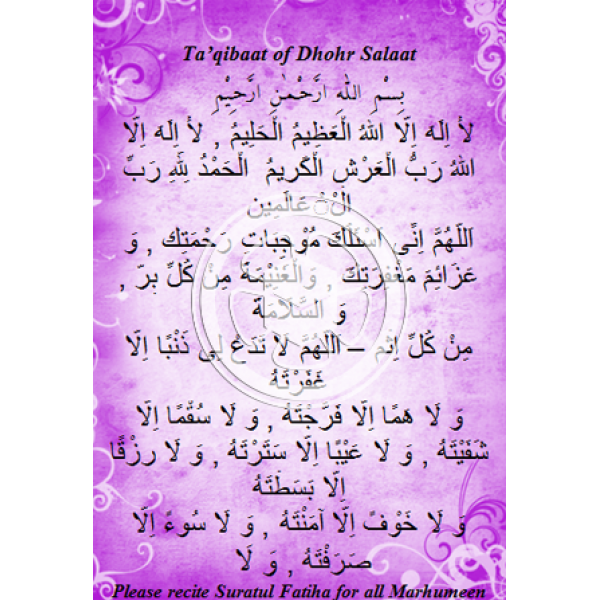 Ta'qibaat of Dhohr Salaat
بِسْمِ اللهِ الرَّحْمٰنِ الرَّحِيْمِ
لَا اِلَهَ اِلَّا اللهُ الْعَظِيمُ الْحَلِيمُ , لَا اِلَه اِلَّا
اللهُ رَبُّ الْعَرْشِ الْكَرِيمُ الْحَمْدُ لِلّٰهِ رَبِّ
الْعَالَمِين
اَللّٰهُمَّ اِنِّي اَسْئَلُكَ مُوْجِبَاتِ رَحْمَتِك , وَ
عَزَائِمَ مَغْفِرَتِكَ , وَالْغَنِيْمَةَ مِنْ كُلِّ بِرّ ,
وَ السَّلَامَةَ
مِنْ كُلِّ اِثْم – اَللّٰهُمَّ لَا تَدَعْ لِي ذَنْبًا اِلَّا
غَفَرْتَهُ
وَ لَا هَمًّا اِلَّا فَرَّجْتَهُ , وَ لَا سُقْمًا اِلَّا
شَفَيْتَهُ , وَ لَا عَيْبًا اِلَّا سَتَرْتَهُ , وَ لَا رِزْقًا
اِلَّا بَسَطْتَهُ
وَ لَا خَوْفً اِلَّا آمَنْتَهُ , وَ لَا سُوءً اِلَّا
صَرَفْتَهُ , وَ لَا
Please recite Suratul Fatiha for all Marhumeen